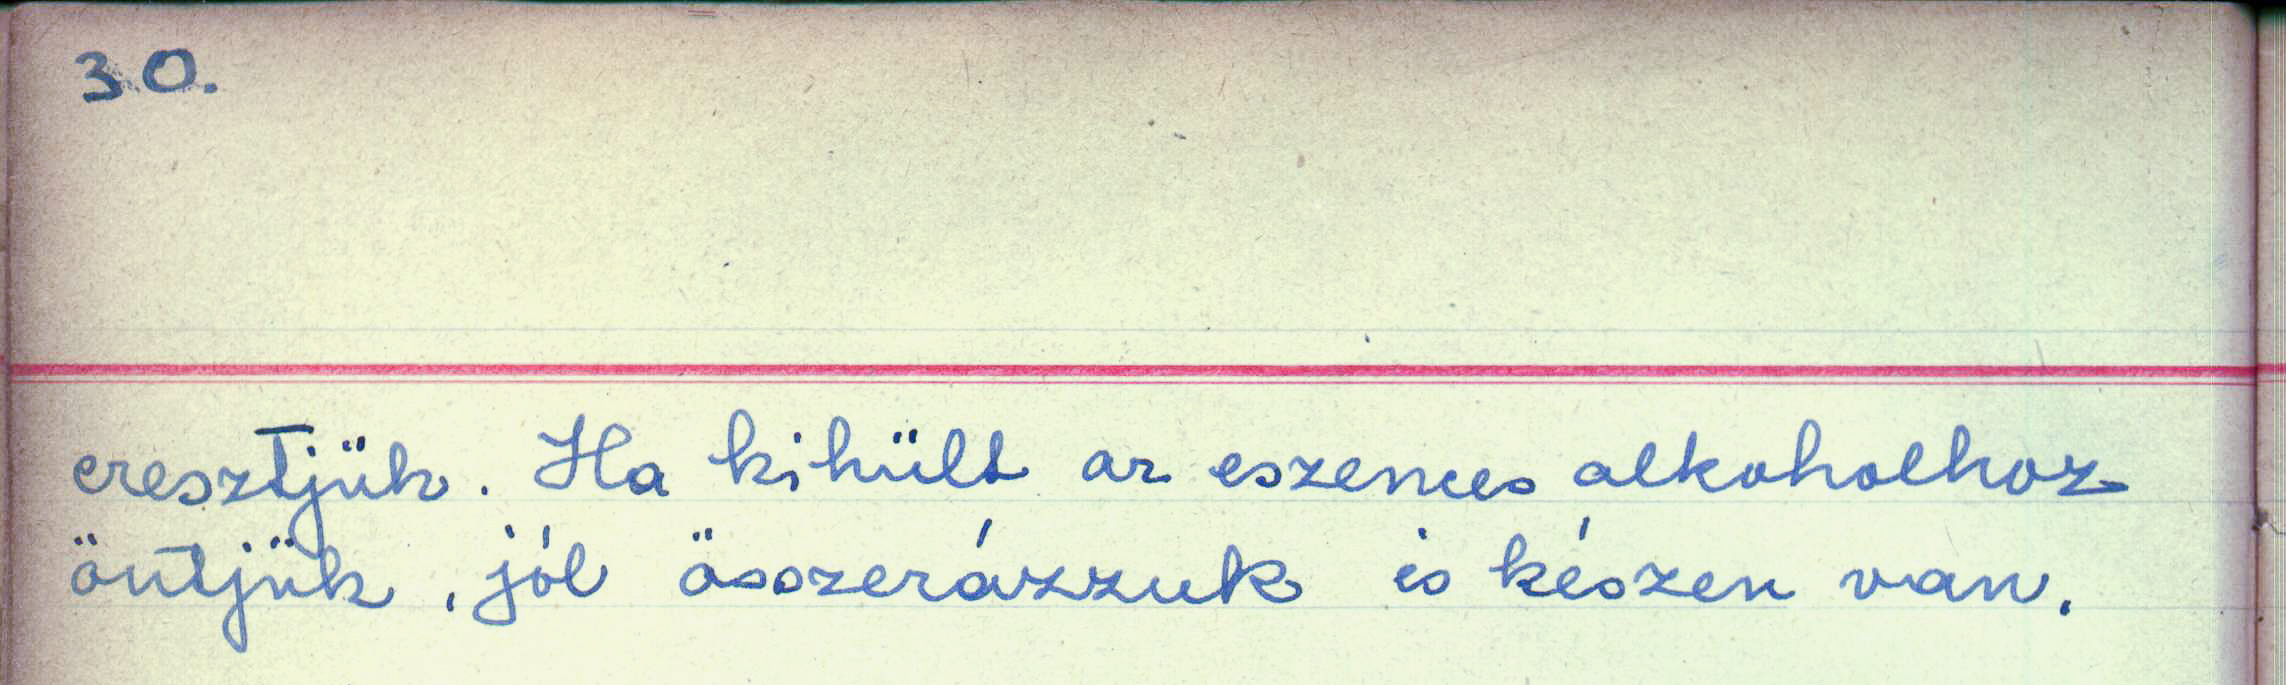 30.
eresztjük. Ha kihült az eszences alkoholhoz
öntjük, jól összerázzuk és készen van.